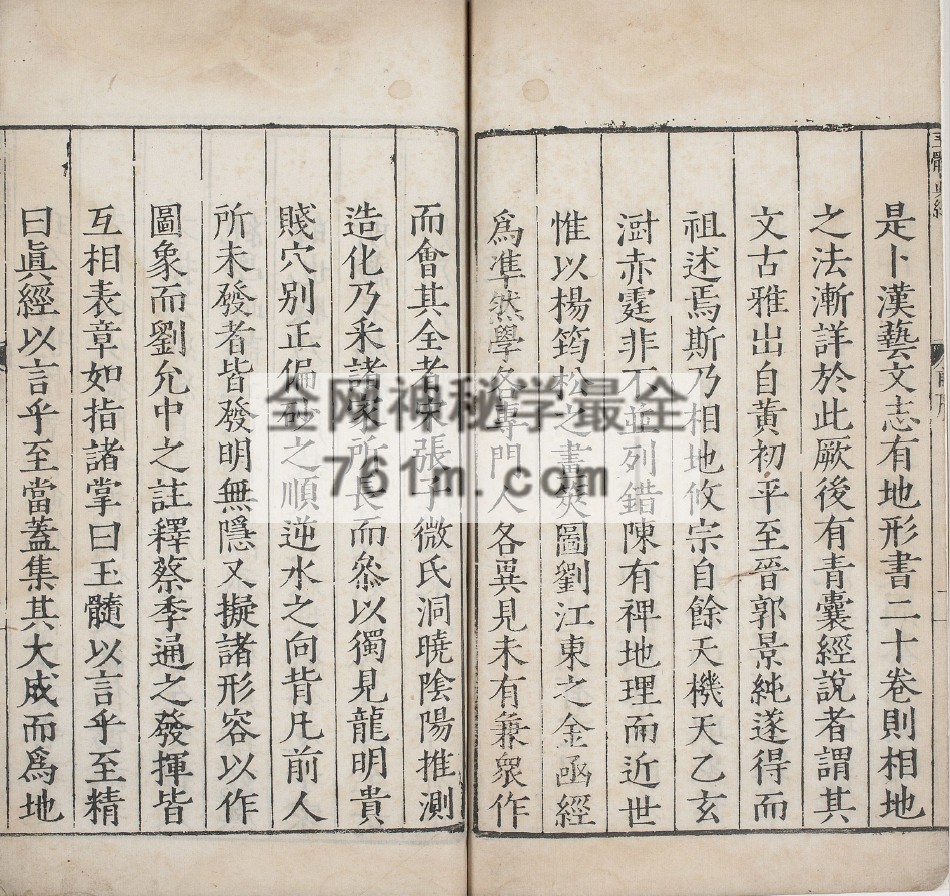 是卜漢藝文志有地形書二十卷則相地
之法漸詳於此厥後有青囊經說者謂其
文古雅出自黃初平至晉郭景純遂得而
祖述焉斯乃相地攸宗自餘天機天乙玄
澍赤霆非不並列錯陳有裨地理而近世
惟以楊筠松之畫筴圖劉江東之金函經
爲準然學各專門人各異見未有兼衆作
而會其全者宋張子微氏洞曉陰陽推測
造化乃采諸家所長而叅以獨見龍明貴
賤穴别正偏砂之順逆水之向背凡前人
所未發者皆發明無隱又擬諸形容以作
圖象而劉允中之註釋蔡季通之發揮皆
互相表章如指諸掌曰玉髓以言乎至精
曰眞經以言乎至當蓋集其大成而爲地
金网神秘学最全
761m.com